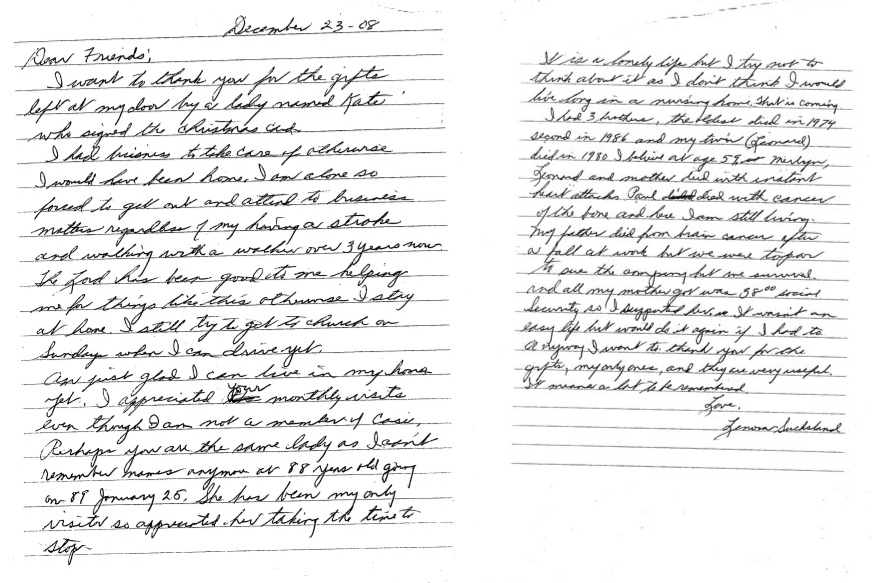 December 23-08
Dear Friends;
I want to thank you for the gifts
left at my door by a lady named Kate
who signed the Christmas card.
I had business to take care of otherwise
I would have been home. I am alone so
forced to get out and attend to business
matters regardless of my having a stroke
and walking with a walker over 3 years now
The Lord has been good to me helping
me for things like this otherwise I stay
at home. I still try to get to church on
Sundays when I can drive yet.
Am just glad I can live in my home
yet. I appreciated your monthly visits
even though I am not a member of
Perhaps you are the same lady as I can't
remember names anymore at 88 years old going
on 89 January 25. She has been my only
visitor so appreciated her taking the time to
stop.
It is a lonely life but I try not to
think about it as I don't think I would
live long in a nursing home. That is coming
I had 3 brothers, the oldest died in 1974
second in 1986 and my twin (Leonard)
died in 1980 I believe at age 59. Merlyn,
Leonard and mother died with instant
heart attacks. Paul died with cancer
of the bone and here I am still living.
My father died from brain cancer after
a fall at work but we were too poor
to sue the company but we survived.
and all my mother got was 38.00 social
Security so I supported her. It wasn't an
easy life but would do it again if I had to.
Anyway I want to thank you for the
gifts, my only ones, and they are very useful.
It means a lot to be remembered.
Love,
Lenora